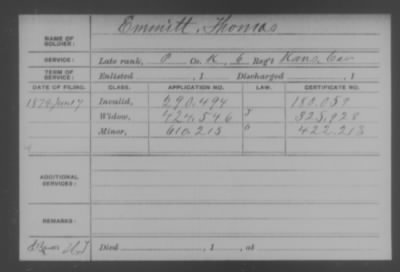 Emmitt, Thomas
NAME OF SOLDIER:
SERVICE: Late rank, P Co. K, 6 Reg't Kans. Cav
TERM OF SERVICE: Enlisted , 1 Discharged , 1
DATE OF FILING. CLASS. APPLICATION NO. LAW. CERTIFICATE NO.
Invalid, 290.494 180.059
Widow, 424.546 325.928
Minor, 610.215 422.213
ADDITIONAL SERVICES:
REMARKS:
Died , 1 , at